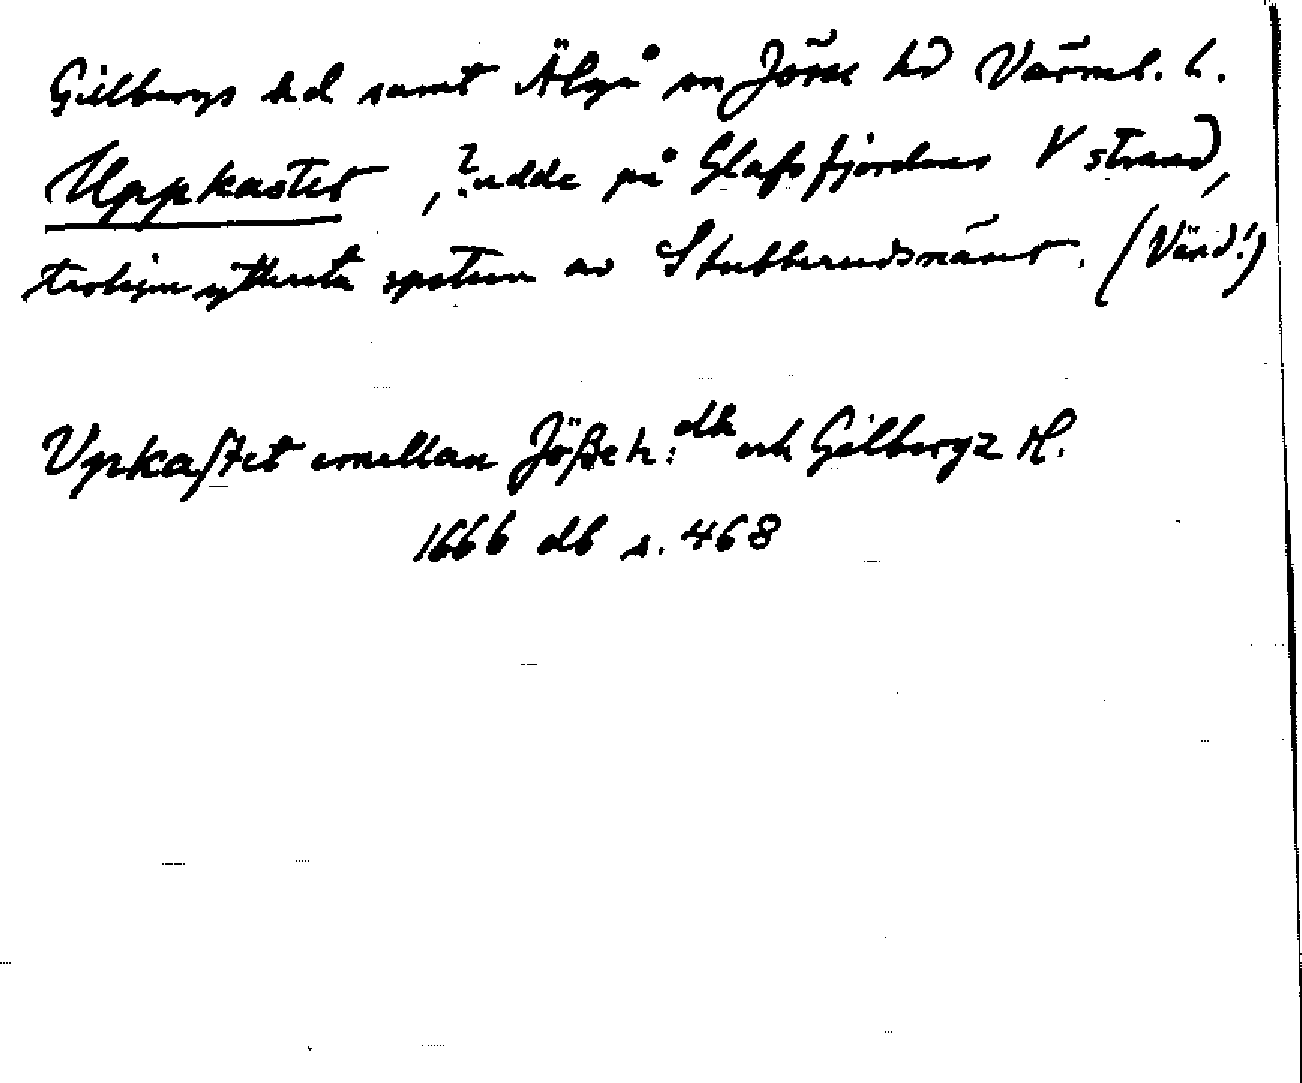 Gillbergs hd samt Älgå sn Jösse hd Värml. l.
Uppkastet, ? udde på Glafsfjordens V strand,
troligen yttersta spetsen av Stubberudsnäset. (Vänd!)
Upkaſtet emellan Jößeh: dh och Gilbergz H.
1666 db s. 468